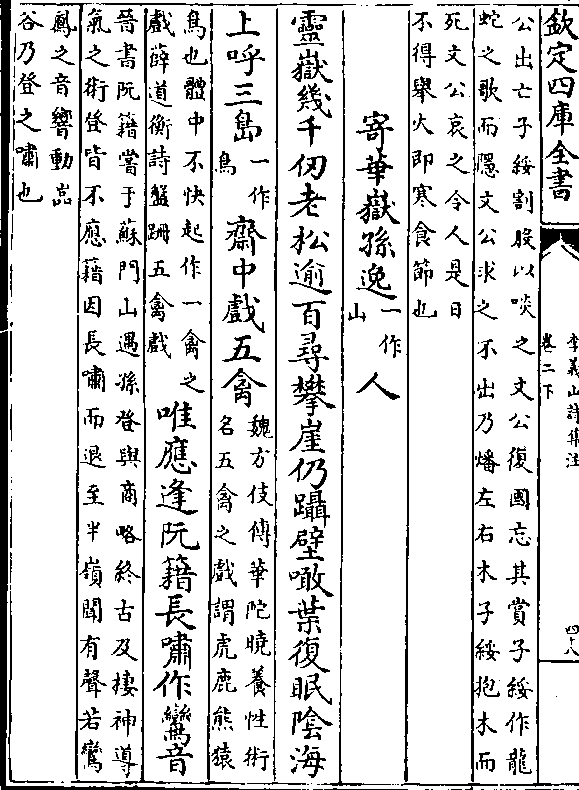 欽定四庫全書
李義山詩集注
卷二下
四十八
公出亡子綏割股以啖之文公復國忘其賞子綏作龍
蛇之歌而隱文公求之不出乃燔左右木子綏抱木而
死文公哀之令人是日
不得舉火即寒食節也
寄華嶽孫逸一作山人
靈嶽幾千仞老松逾百尋攀崖仍躡壁噉葉復眠陰海
上呼三島一作鳥齋中戲五禽魏方伎傳華陀曉養性術
名五禽之戲謂虎鹿熊猿
鳥也體中不快起作一禽之
戲薛道衡詩盤跚五禽戲唯應逢阮籍長嘯作鸞音
晉書阮籍嘗于蘇門山遇孫登與商略終古及棲神導
氣之術登皆不應籍因長嘯而退至半嶺聞有聲若鸞
鳳之音響動巖
谷乃登之嘯也